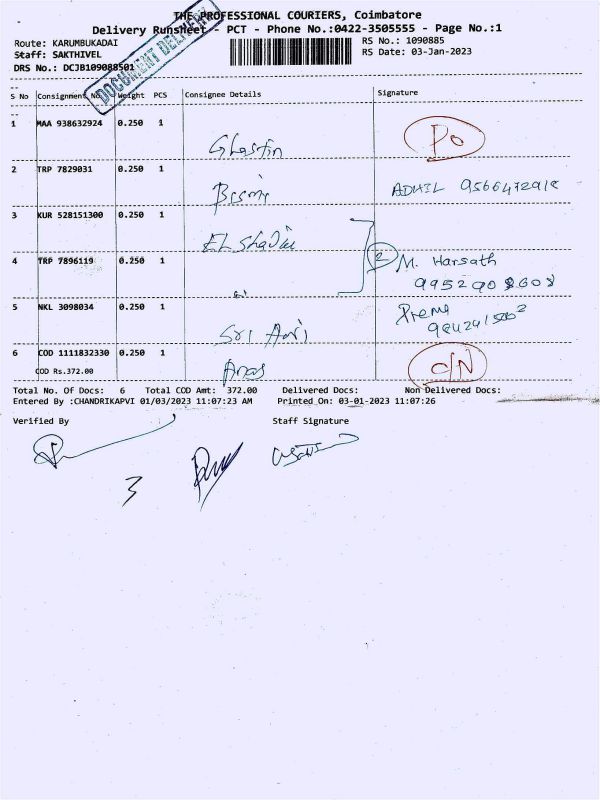 THE PROFESSIONAL COURIERS, Coimbatore
Delivery Runsheet - PCT - Phone No.:0422-3505555 - Page No.:1
Route: KARUMBUKADAI
RS No.: 1090885
Staff: SAKTHIVEL
RS Date: 03-Jan-2023
DRS No.: DCJB109088501
DOCUMENT DELIVERY
S No Consignment No Weight PCS Consignee Details Signature
1 MAA 938632924 0.250 1 PO
2 TRP 7829031 0.250 1 Bismi ADHIL
3 KUR 528151300 0.250 1 EL Shadai
4 TRP 7896119 0.250 1 2 M. Harsath
5 NKL 3098034 0.250 1 Sri Prema
6 COD 1111832330 0.250 1 Anas
COD Rs.372.00
Total No. Of Docs: 6 Total COD Amt: 372.00 Delivered Docs: Non Delivered Docs:
Entered By :CHANDRIKAPVI 01/03/2023 11:07:23 AM Printed On: 03-01-2023 11:07:26
Verified By Staff Signature
3